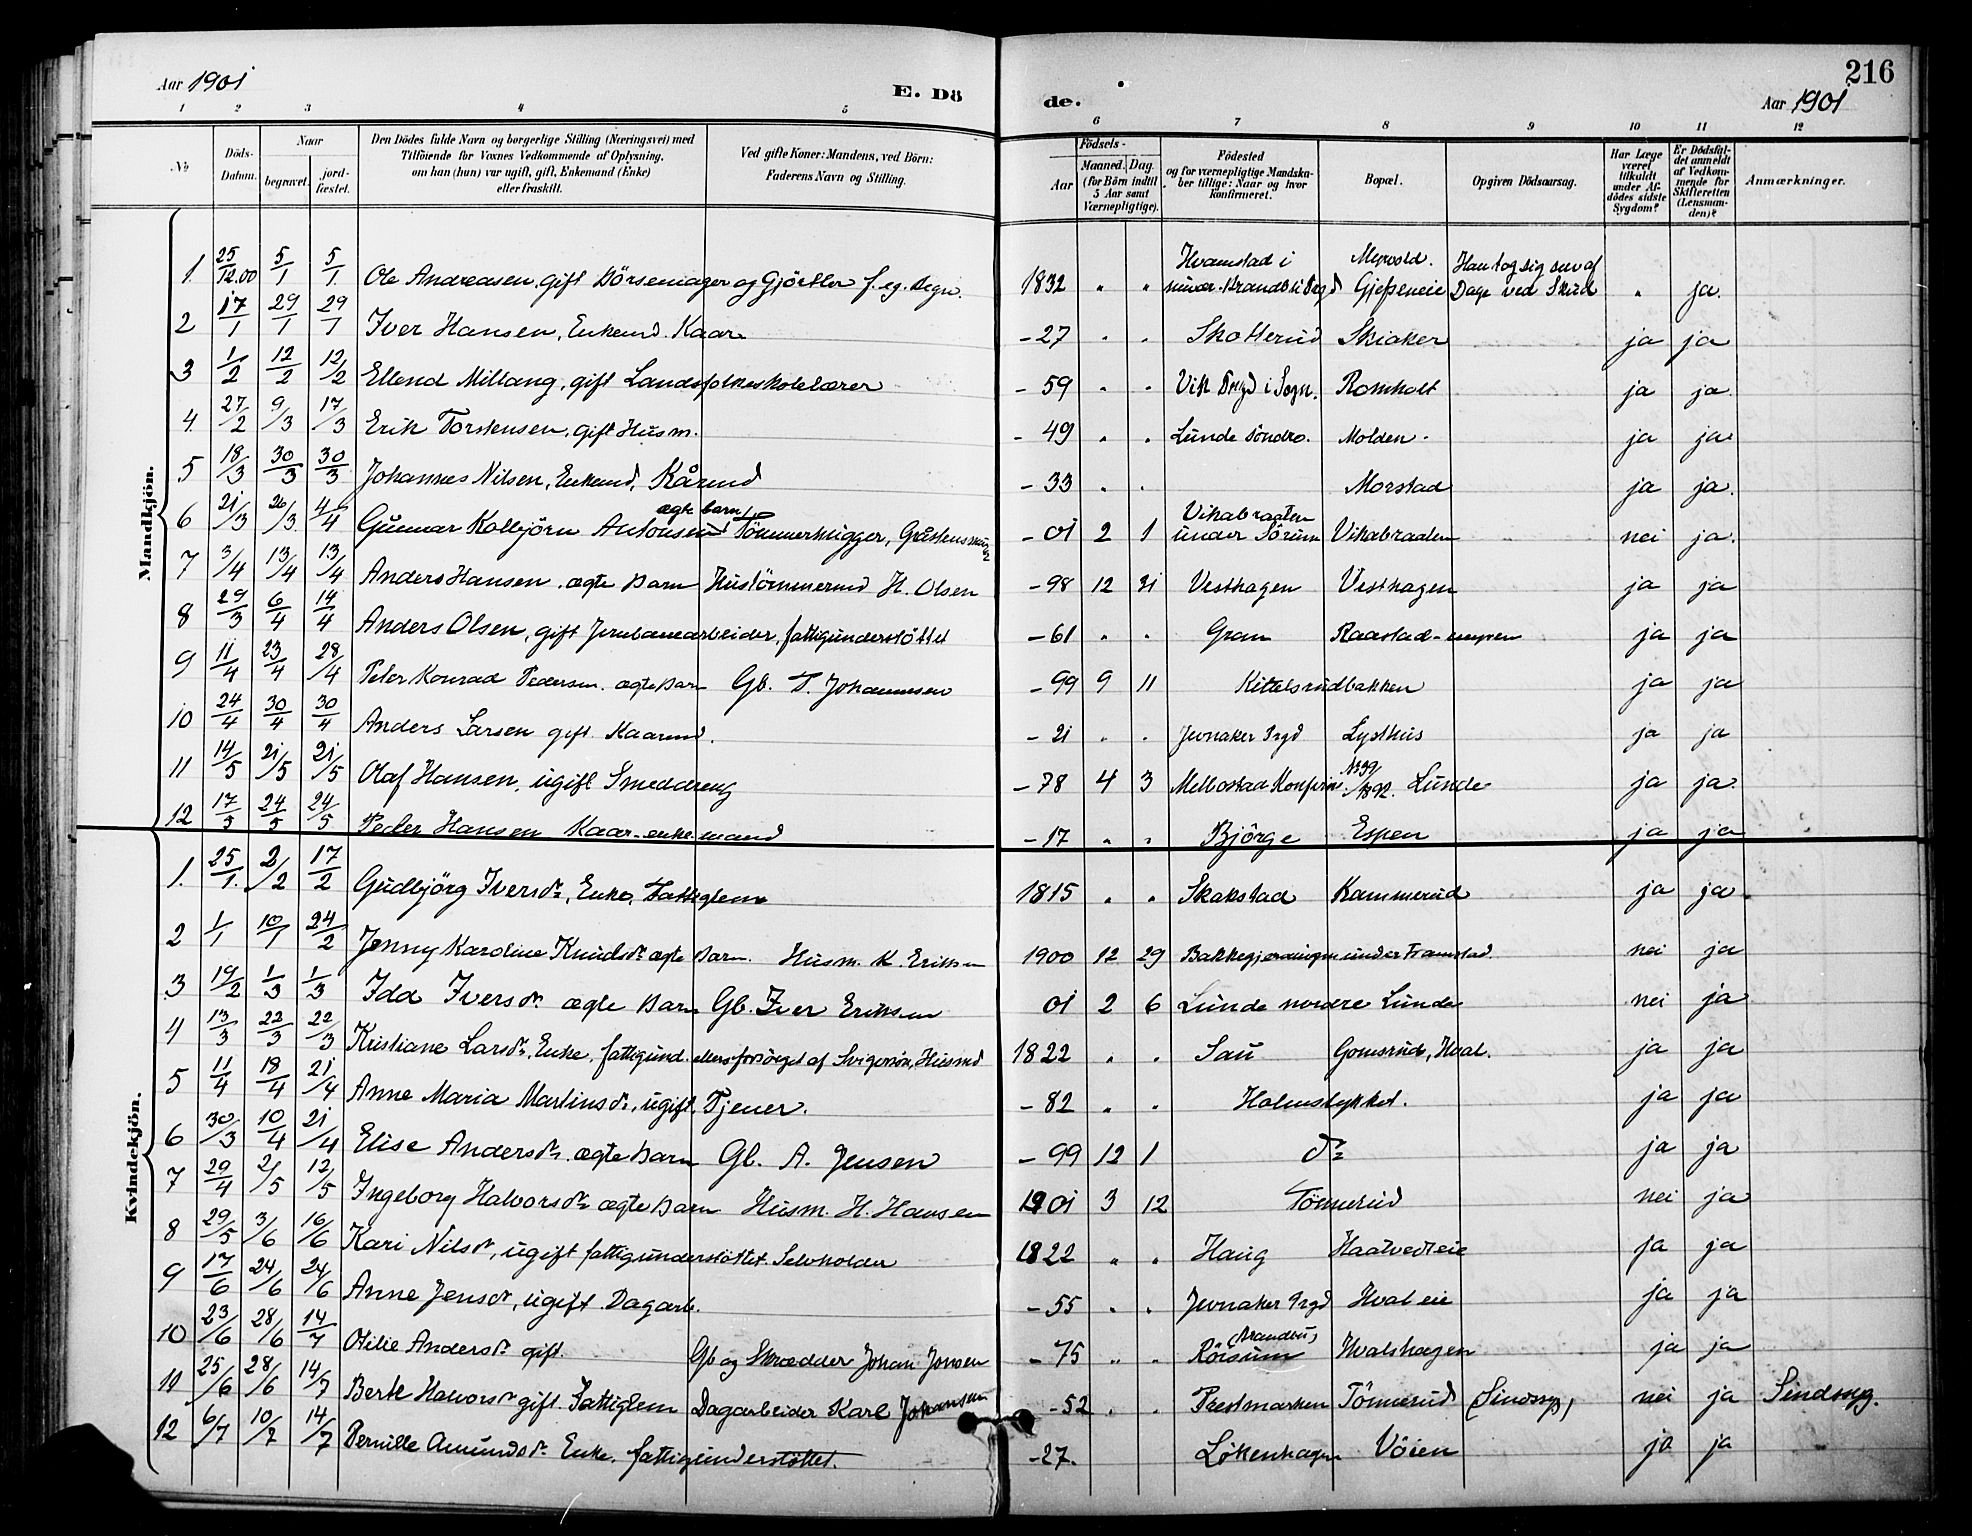 Aar 1901
E. Dö
de.
216
Aar 1901
1 2 3 4 5 6 7 8 9 10 11 12
No
Döds-Datum.
Naar
begravet.
jord-fæstet.
Den Dödes fulde Navn og borgerlige Stilling (Næringsvei) med
Tilföiende for Voxnes Vedkommende af Oplysning,
om han (hun) var ugift, gift, Enkemand (Enke)
eller fraskilt.
Ved gifte Koner: Mandens, ved Börn:
Faderens Navn og Stilling.
Födsels-
Aar
Maaned. Dag.
(for Börn indtil
5 Aar samt
Værnepligtige).
Födested
og for værnepligtige Mandska-
ber tillige: Naar og hvor
konfirmeret.
Bopæl.
Opgiven Dödsaarsag.
Har Læge
været
tilkaldt
under Af-
dödes sidste
Sygdom?
Er Dödsfal-
det anmeldt
af Vedkom-
mende for
Skifteretten
(Lensman-
den)?
Anmærkninger.
Mandkjön.
1. 25/12.00 5/1 5/1. Ole Andreasen, gift Börsemager og Gjörtler f. eg. Regn. 1832 " " Hvamstad i Brandbu Prgd Gjefseneie Han tog sig selv af Dage ved Skud " ja.
2 17/1 29/1 29/1 Iver Hansen, Enkemd. Kaar - 27 " " Skotterud Skiaker ja ja
3 1/2 12/2 12/2 Ellend Mittang, gift Landsfolkeskolelærer - 59 " " Vik Prgd i Sogn. Romholt ja ja.
4. 27/2 9/3 17/3 Erik Torstensen, gift Husm. - 49 " " Lunde söndre. Molden. ja ja.
5 18/3 30/3 30/3 Johannes Nilsen, Enkemd, Kårmd - 33 " " Morstad ja ja.
6 21/3 26/3. 4/4 Gunnar Kolbjörn Antonsen ægte barn Tömmerhugger, - 01 2 1 Vikabraaten under Sörum Vikabraaten nei ja.
7 3/4 13/4 13/4 Anders Hansen. ægte Barn Hustömmermd H. Olsen - 98 12 31 Vesthagen Vesthagen ja ja
8 29/3 6/4 14/4 Anders Olsen, gift Jernbanearbeider, fattigunderstöttet - 61 " " Gran Raastad-myren ja ja
9 11/4 23/4 28/4 Peter Konrad Pedersen. ægte Barn Gb. P. Johannesen - 99 9 11 Kittelsrudbakken ja ja
10 24/4 30/4 30/4 Anders Larsen gift Kaarmd. - 21 " " Jevnaker Prgd Lysthus ja ja
11 14/5 21/5 21/5 Olaf Hansen, ugift Smeddreng - 78 4 3 Melbostad Konfirm. No 39 /1892. Lunde ja ja.
12 17/5 24/5 24/5 Peder Hansen Kaar-enkemand - 17 " " Björge Espen ja ja
Kvindekjön.
1. 25/1. 2/2 17/2 Gudbjörg Iversdr, Enke, Fattiglem 1815 " " Skakstad Kammerud ja ja.
2 1/1 10/1 24/2 Jenny Karoline Knudsdr ægte Barn. Husm. K. Eriksen 1900 12 29 Bakkegjerdingen under Framstad nei ja
3 19/2 1/3 1/3 Ida Iversdr. ægte Barn Gb. Iver Eriksen 01 2 6 Lunde nordre Lunde nei ja
4 13/3 22/3 22/3 Kristiane Larsdr, Enke, fattigund. ellers forsörget af Svigersön, Husmd 1822 " " Sau Gomsrud, Hval. ja ja
5 11/4 18/4 21/4 Anne Maria Martinsdr, ugift, Tjener. - 82 " " Holmstykket. ja ja
6 30/3 10/4 21/4 Elise Andersdr. ægte Barn Gb. A. Jensen - 99 12 1 do ja ja
7 29/4 2/5 12/5 Ingeborg Halvorsdr ægte Barn Husm. H. Hansen 1901 3 12 Tömmerud nei ja
8 29/5 3/6 16/6 Kari Nilsdr, ugift fattigunderstöttet. Selvholder 1822 " " Haug Haatvedteie ja ja
9 17/6 24/6 24/6 Anne Jensdr, ugift. Dagarb. - 55 " " Jevnaker Prgd Hval eie ja ja
10 23/6 28/6 14/7 Otilie Andersdr gift. Gb og Skrædder Johan Jonsen - 75 " " (Brandbu) Röisum Hvalshagen ja ja
11 25/6 28/6 14/7 Berte Halvorsdr gift Fattiglem Dagarbeider Karl Johansen - 52 " " Prestmarken Tömmerud (Sindssyg) nei ja Sindssyg.
12 6/7 10/7 14/7 Pernille Amundsdr Enke. fattigunderstöttet. - 27. Lökenhagen Vöien ja ja